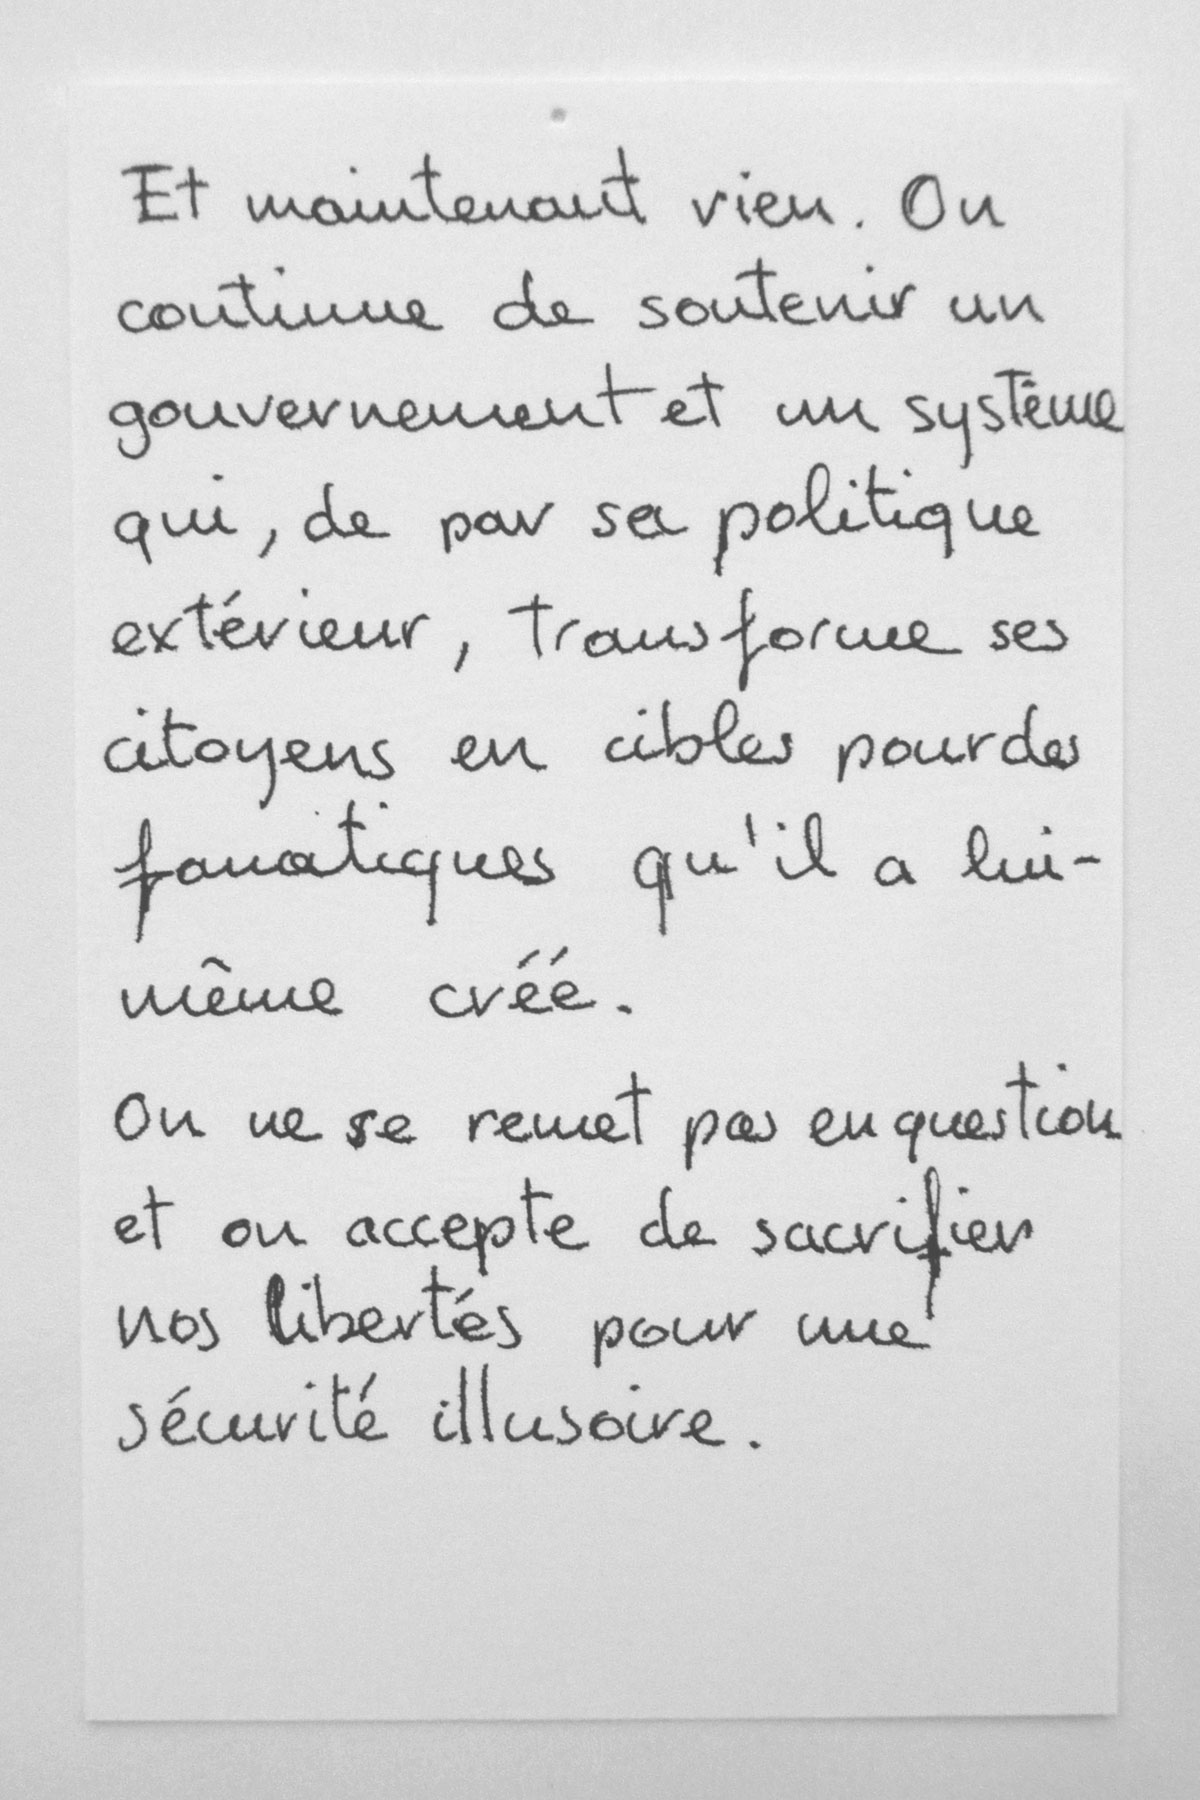 Et maintenant rien. On
continue de soutenir un
gouvernement et un système
qui, de par sa politique
extérieur, transforme ses
citoyens en cibles pour des
fanatiques qu'il a lui-
même créé.
On ne se remet pas en question
et on accepte de sacrifier
nos libertés pour une
sécurité illusoire.